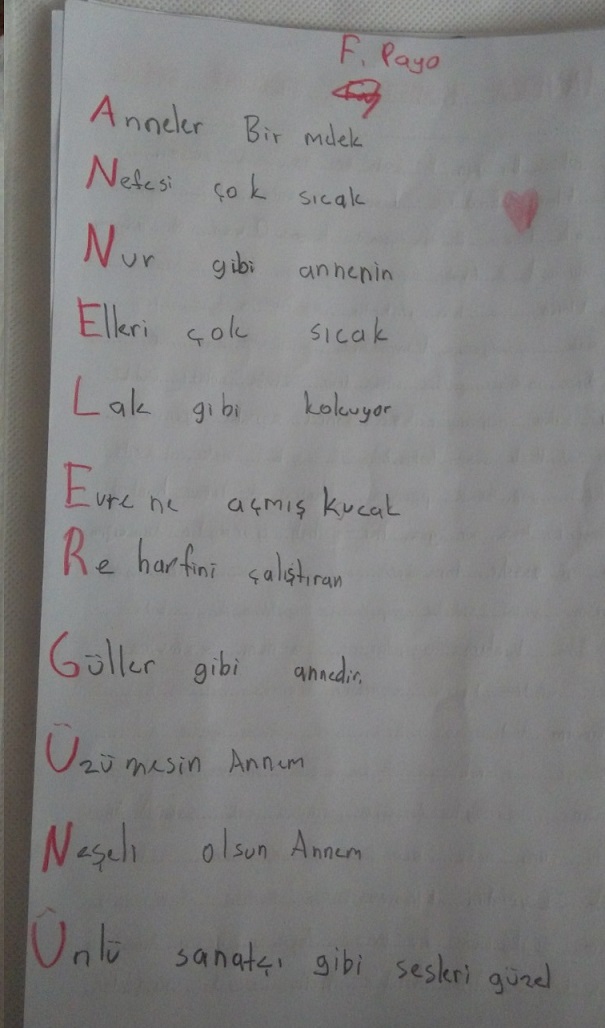 F. Payo
Anneler Bir mdek
Nefesi çok sıcak
Nur gibi annenin
Elleri çok sıcak
Lak gibi kokuyor
Evre ne açmış kucak
Re harfini çalıştıran
Güller gibi annedir.
Üzü mesin Annem
Neşeli olsun Annem
Ünlü sanatçı gibi sesleri güzel